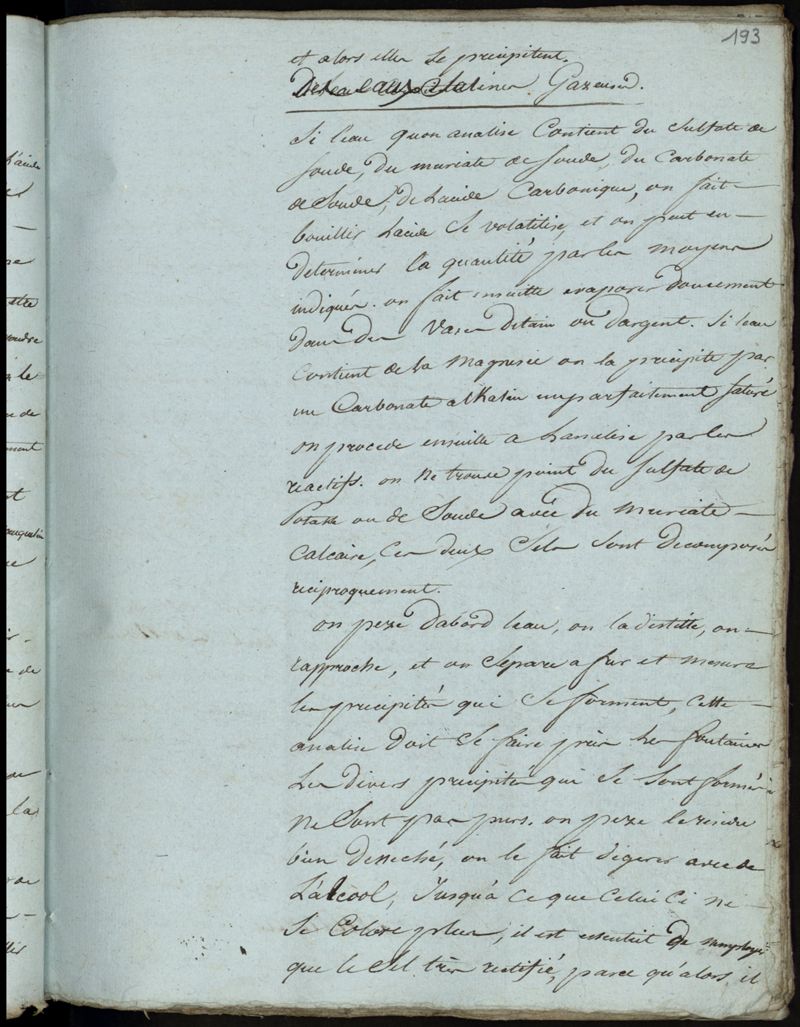 193
et alors elles se precipitent.
Des Eaux Salines Gazeuses.
Si leau quon analise Contient du Sulfate de
soude, du muriate de soude, du Carbonate
de Soude, de Lacide Carbonique, on fait
bouillir Lacide se volatilise, et on peut en
determiner la quantité par les moyens
indiqués. on fait ensuitte evaporer doucement
dans des Vases detain ou dargent. Si leau
Contient de la Magnesie on la precipite par
un Carbonate alkalin imparfaitement saturé
on procede ensuitte a Lanalise par les
reactifs. on ne trouve point du sulfate de
Potasse ou de Soude avec du muriate
Calcaire, Ces deux Sels sont decomposés
reciproquement.
on peze dabord leau, on la distille, on
rapproche, et on Separe a fur et mesure
les precipités qui se forment, Cette
analise doit se faire près les fontaines
Les divers precipités qui se sont formés
ne sont pas purs. on peze le residu
bien desseché, on le fait digerer avec de
L'alcool, Jusqu'à ce que Celui Ci ne
se Colore plus, il est essentiel de nemployer
que le très rectifié, parce qu'alors il